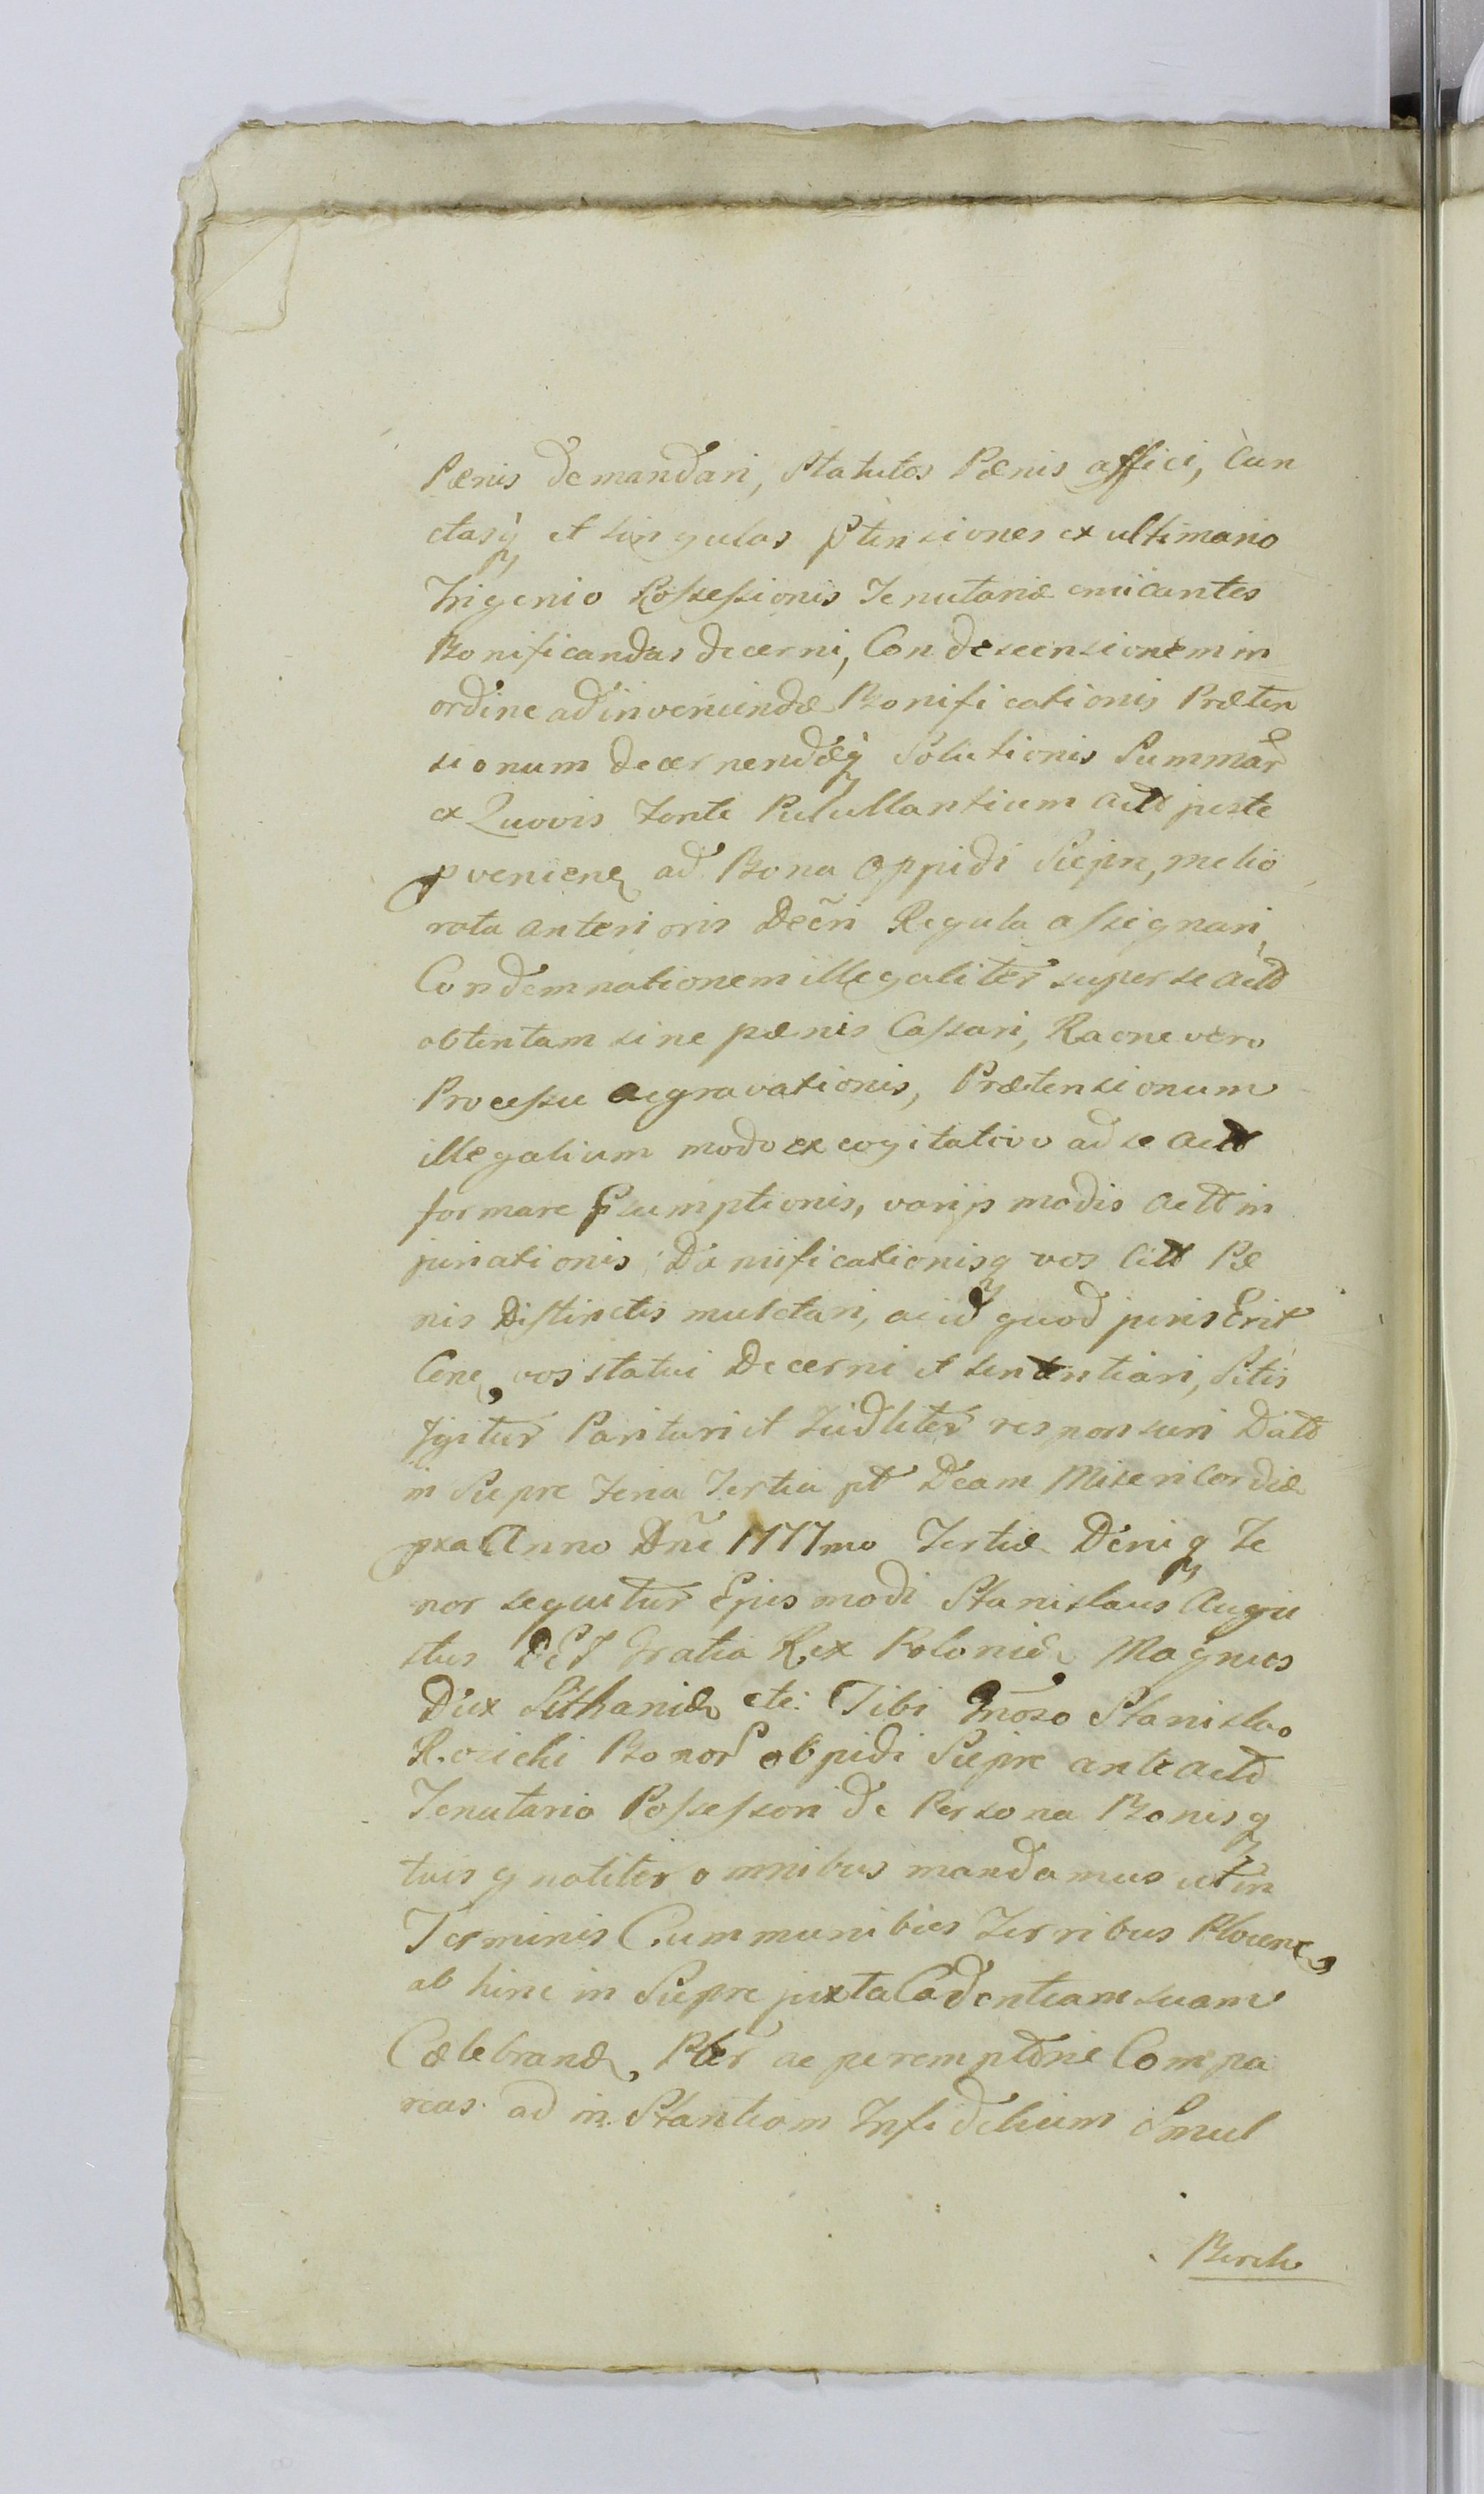 Pænis demandari, Statutos Pænis affici, Cun
ctasq et singulas ptensiones ex ultimario
Trigenio Possessionis Tenutariæ emicantes
Bonificandas decerni, Condescensionem in
ordine adinveniendæ Bonificationis Præten
sionum decernendæq Solutionis Summar
ex Quovis fonte Pulullantium Actt juste
pvenien ad Bona Oppidi Siepn, melio
rata anterioris Decri Regula assignari,
Condemnationem illegaliter super se actt
obtentam sine pænis Cassari, Raone vero
Processu aggravationis, Prætensionum
illegalium modo excogitativo ad se actt
formare psumptionis, varijs modis actt in
juriationis Damnificationisq vos Citt Pæ
nis Distinctis mulctari, ac id quod juris Erit
Cene vos statui Decerni et sententiari, Sitis
Igitur Parituri et Judliter responsuri Datt
in Siepre feria Tertia pt Dcam Misericordiæ
pxa Anno Dni 1777mo Tertiæ Deniq Te
nor sequitur Ejusmodi Stanislaus Augu
stus DEI Gratia Rex Poloniæ Magnus
Dux Lithaniæ etc: Tibi Gnoso Stanislao
Rocicki Bonor obpidi Siepre ante actt
Tenutario Possessori de Persona Bonisq
tuis gnaliter omnibus mandamus ut in
Terminis Cummunibus Terribus Plocen
ab hinc in Siepre juxta Cadentiam suam
Cælebrand, Pler ac peremptorie Compa
reas ad in Stantiam Infidelium Smul
Berek